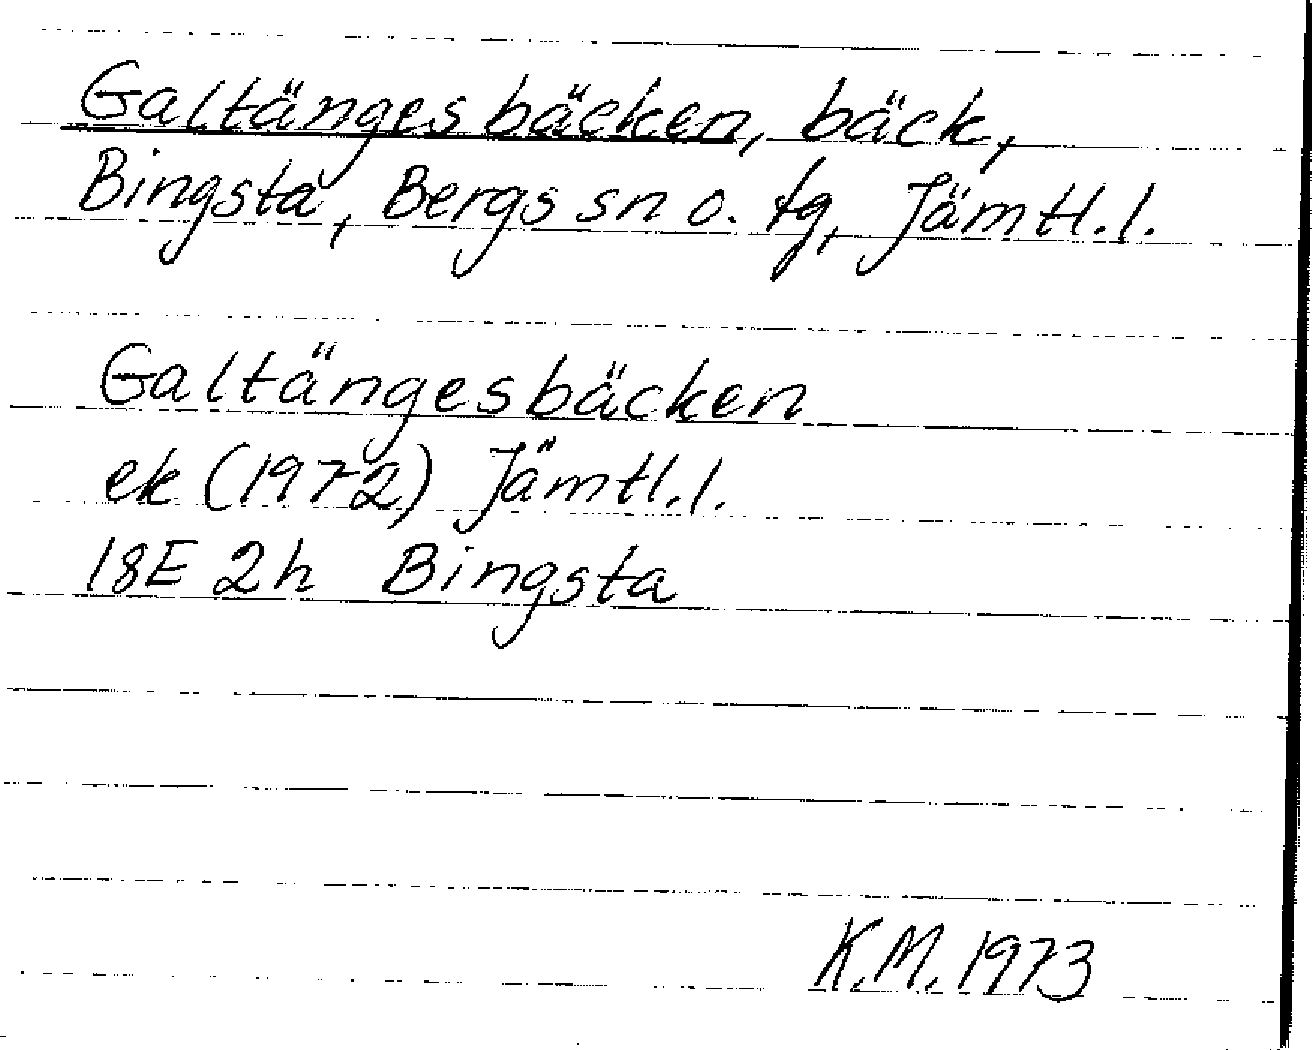 Galtängesbäcken, bäck,
Bingsta, Bergs sn o. tg, Jämtl.l.
Galtängesbäcken
ek (1972) Jämtl.l.
18E 2h Bingsta
K.M. 1973